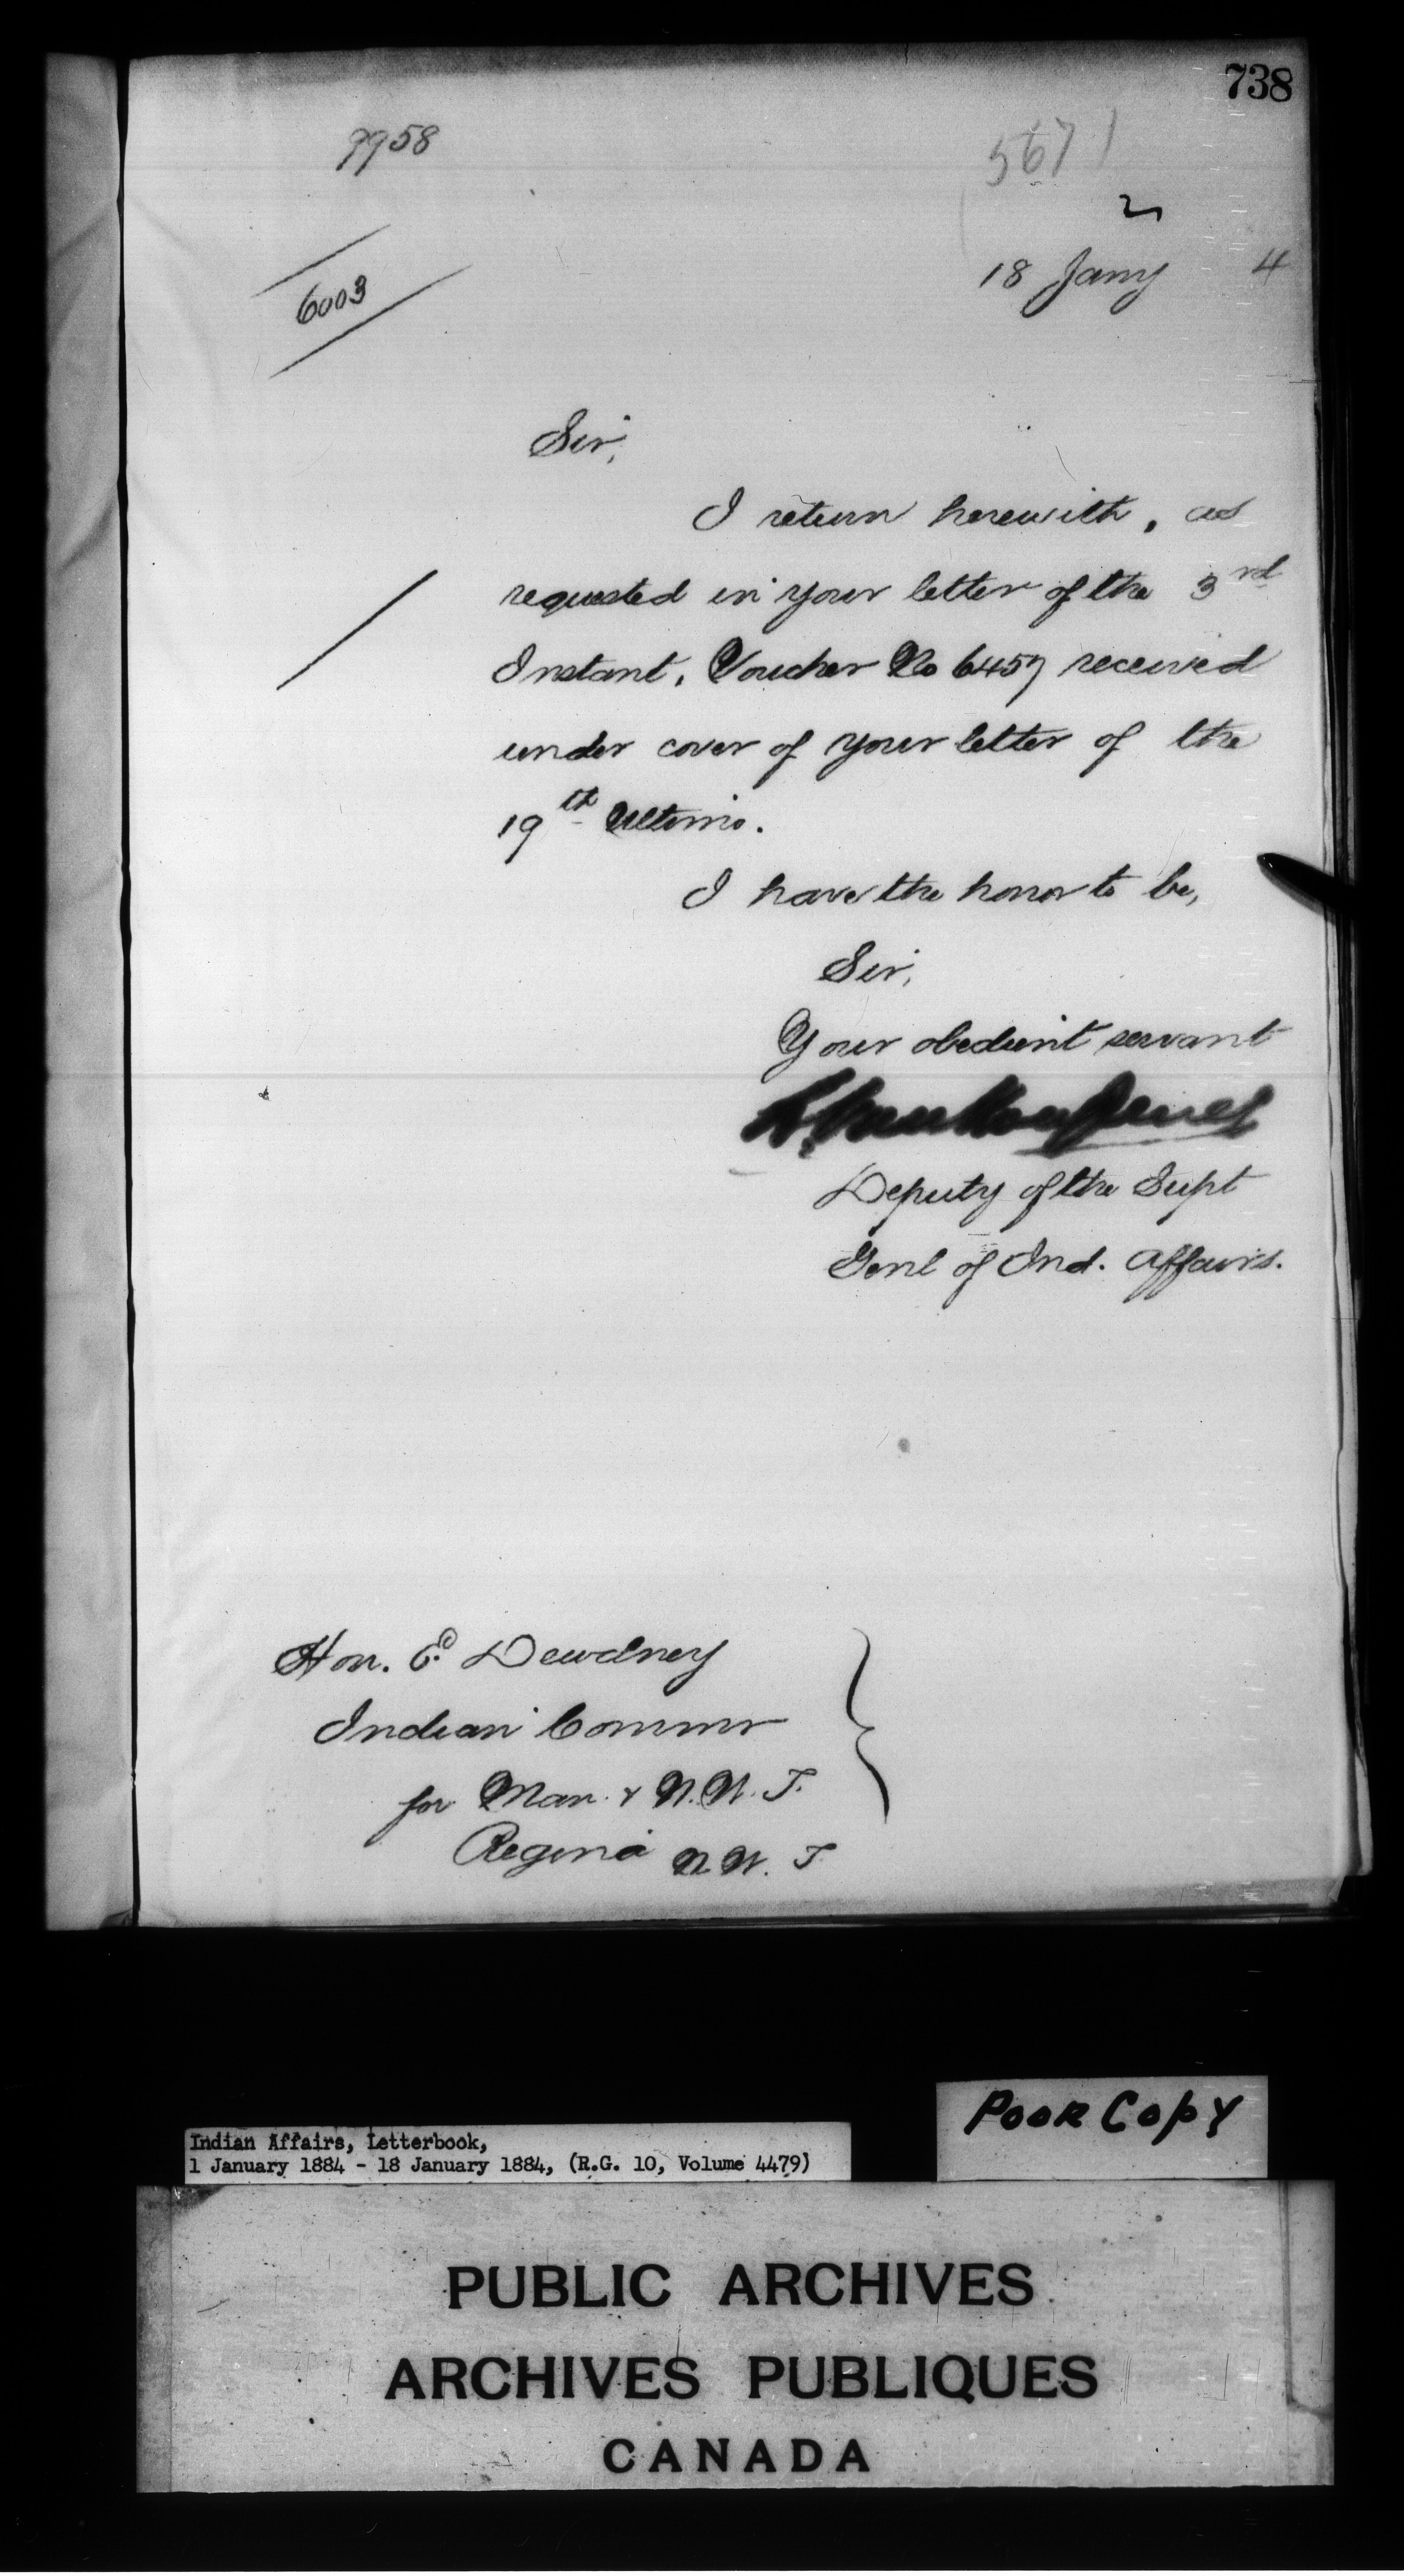 738
9958
5671
2
18 Jany 4
6003
Sir,
I return herewith, as
requested in your letter of the 3rd
Instant, Voucher No 6457 received
under cover of your letter of the
19th Ultimo.
I have the honor to be,
Sir,
Your obedient servant
L. VanKoughnet
Deputy of the Supt
Genl of Ind. Affairs.
Hon. E. Dewdney
Indian Commr
for Man. & N.W.T.
Regina N.W.T.
Poor Copy
Indian Affairs, Letterbook,
1 January 1884 - 18 January 1884, (R.G. 10, Volume 4479)
PUBLIC ARCHIVES
ARCHIVES PUBLIQUES
CANADA